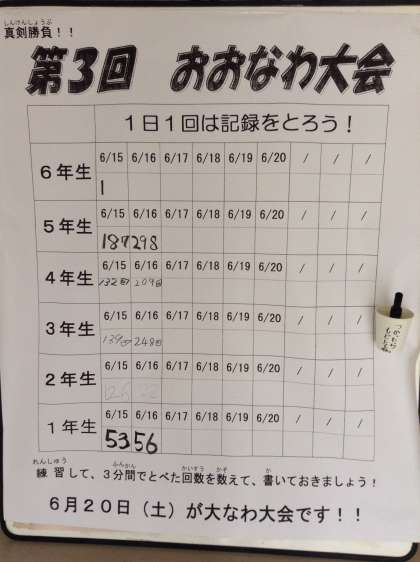 しんけんしょうぶ
真剣勝負！！
第３回　おおなわ大会
１日１回は記録をとろう！
６年生 6/15 6/16 6/17 6/18 6/19 6/20 / / /
1
５年生 6/15 6/16 6/17 6/18 6/19 6/20 / / /
187 298
４年生 6/15 6/16 6/17 6/18 6/19 6/20 / / /
132回 209回
３年生 6/15 6/16 6/17 6/18 6/19 6/20 / / /
139回 248回
２年生 6/15 6/16 6/17 6/18 6/19 6/20 / / /
１年生 6/15 6/16 6/17 6/18 6/19 6/20 / / /
53 56
れんしゅう ふんかん かいすう かぞ か
練習して、３分間でとべた回数を数えて、書いておきましょう！
６月２０日（土）が大なわ大会です！！